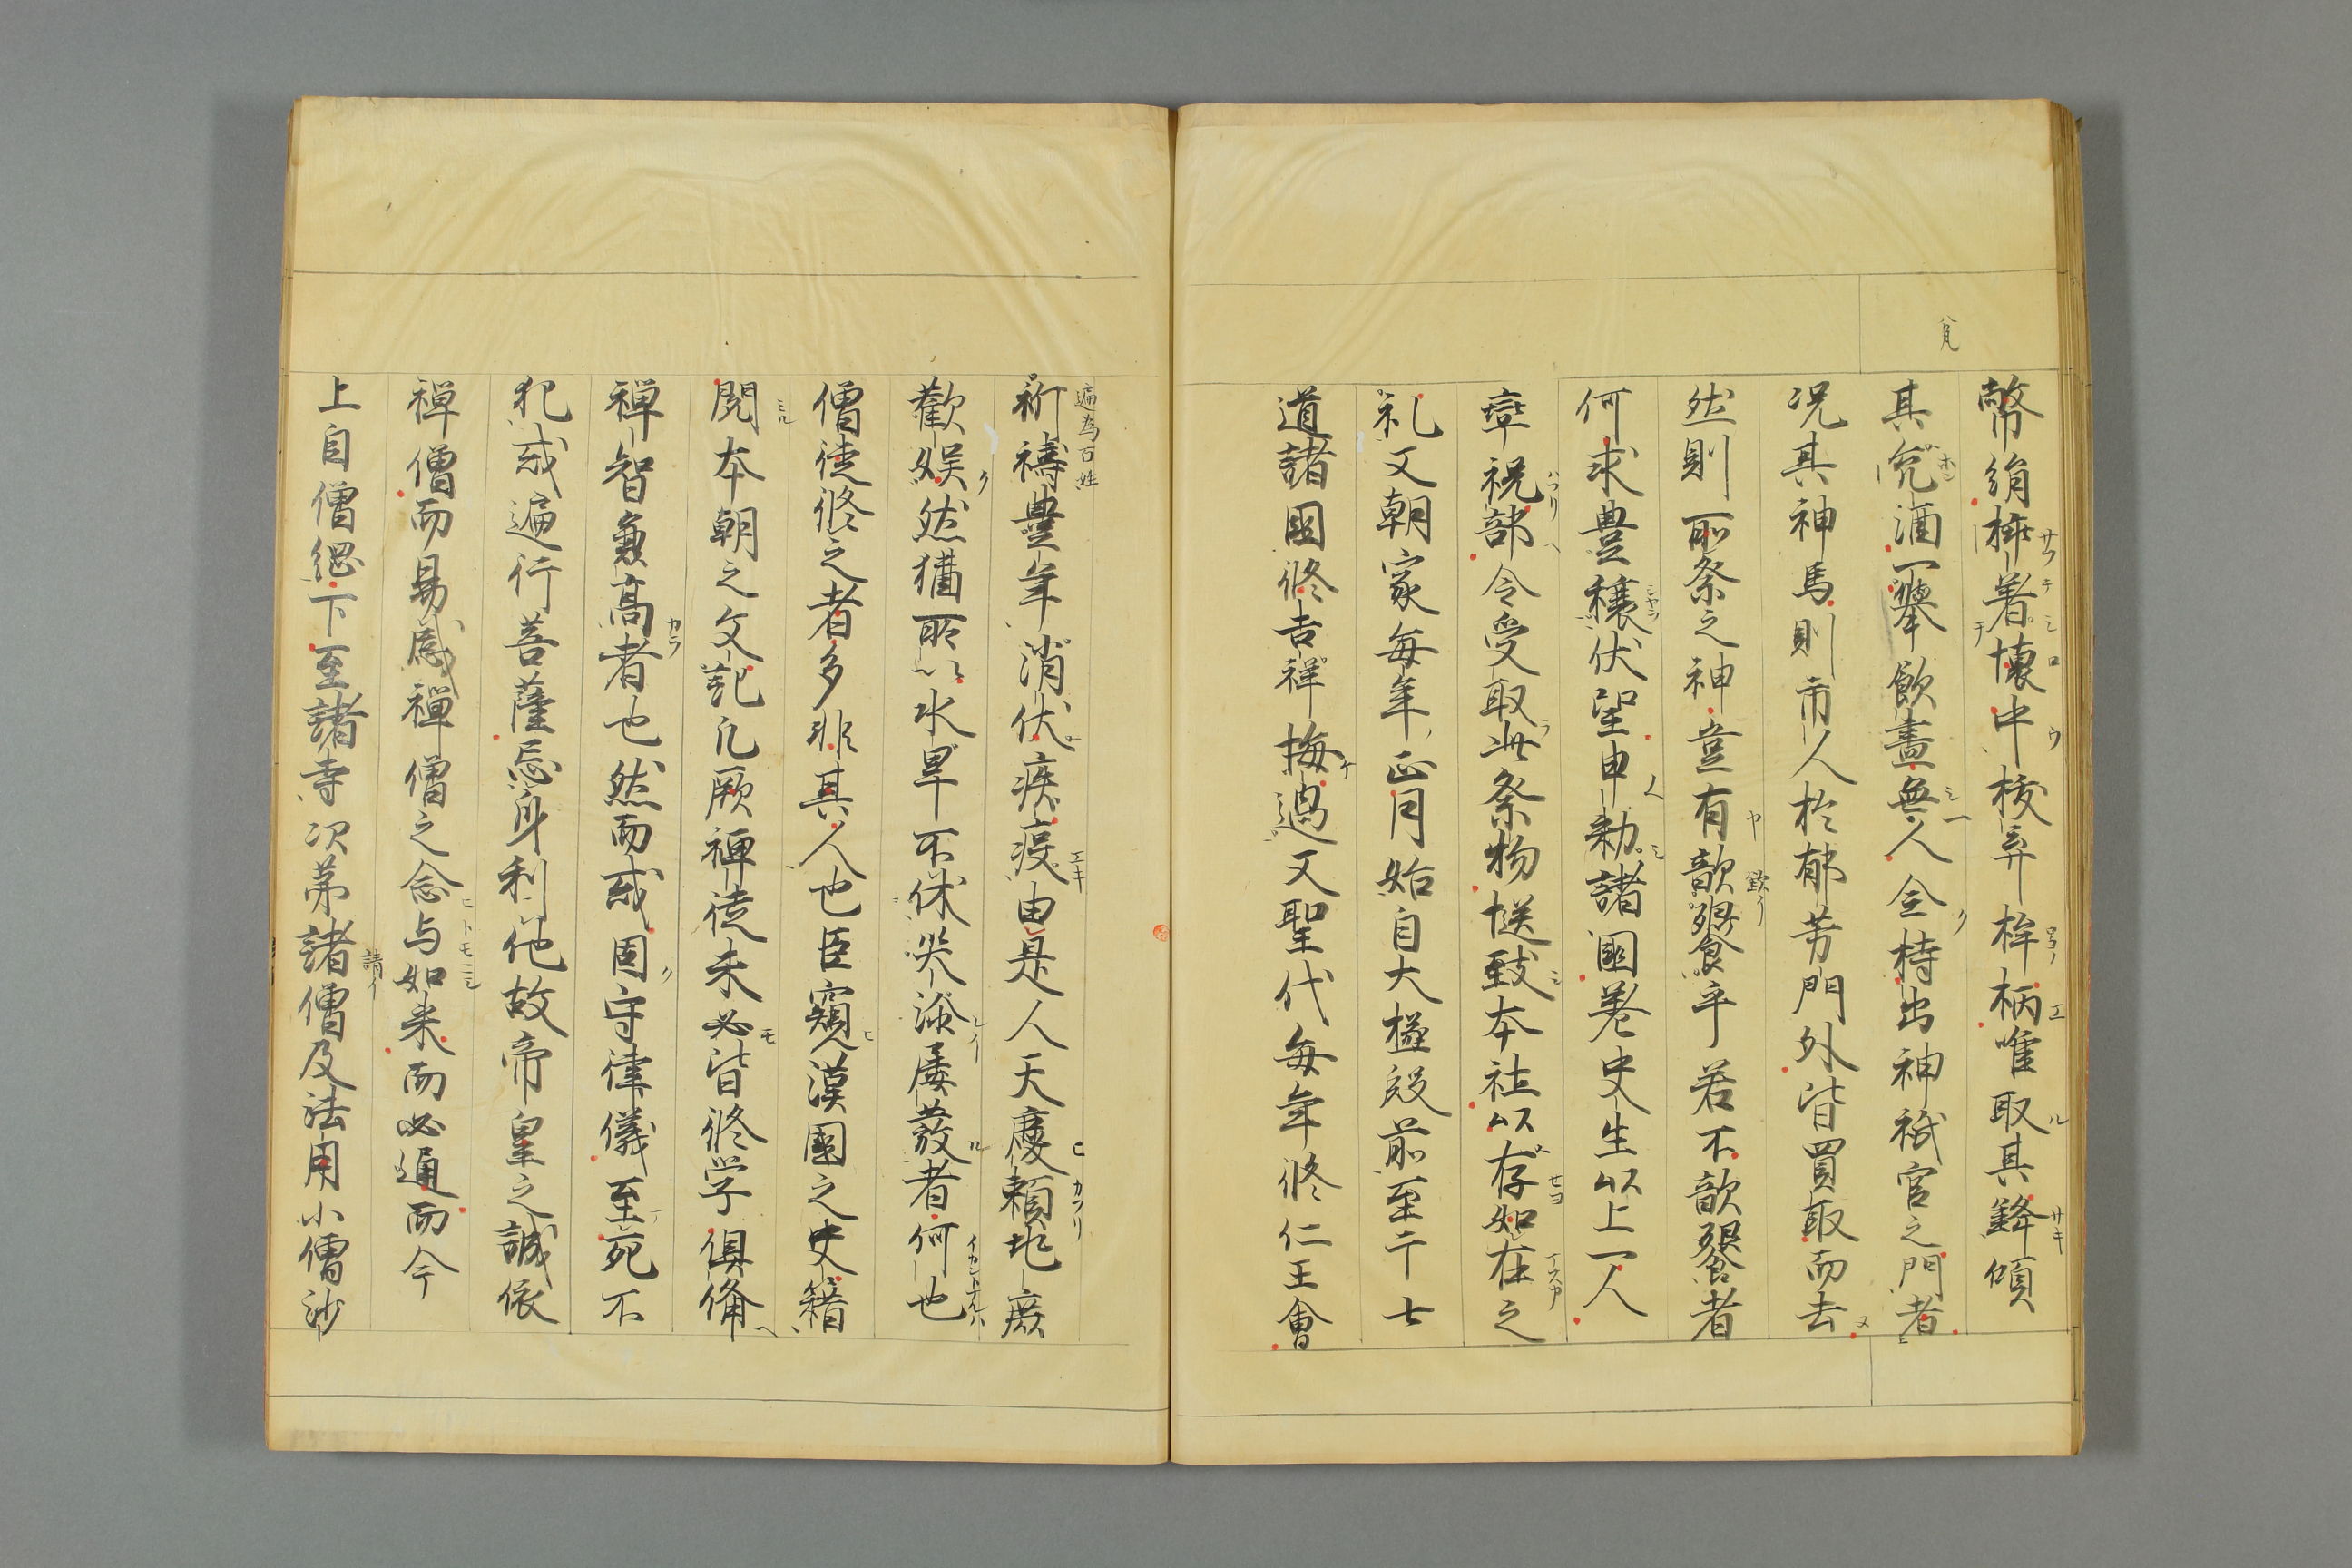 幣絹挿著懐中抜弃桙柄唯取其鋒傾
其瓫酒一擧飲盡無人全持出神祇官之門者
况其神馬則市人於郁芳門外皆買取而去
然則所祭之神豈有歆饗乎若不歆饗者
何求豊穰伏望申勅諸國差史生以上一人
率祝部令受取此祭物慥致本社以存如在之
礼又朝家毎年正月始自大極殿前至于七
道諸國修吉祥悔過又聖代毎年修仁王會
遍為百姓
祈禱豊年消伏疾疫由是人天慶頼兆庶
歡娯然猶所以水旱不休災沴屡發者何也
僧徒修之者多非其人也臣窺漢國之史籍
閲本朝之文記凡厥禅徒未必皆修学俱備
禅智兼高者也然而或固守律儀至死不
犯或遍行菩薩忘身利他故帝皇之誠依
禅僧而易感禅僧之念与如来而必通而今
上自僧綱下至諸寺次第諸僧及法用小僧沙